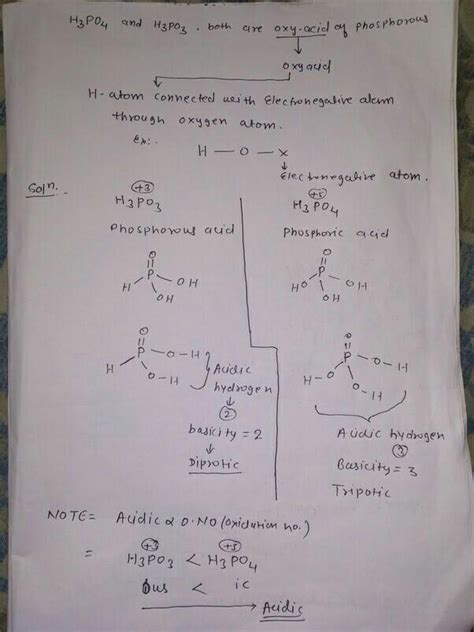 H3PO4 and H3PO3. both are oxy-acid of phosphorous
oxyacid
H-atom connected with Electronegative atom
through oxygen atom.
Ex:
H — O — X
Electronegative atom.
Soln.
+3
H3PO3
Phosphorous acid
O
P
H OH
OH
O
P
H O—H
O—H
Acidic
hydrogen
2
basicity = 2
Diprotic
+5
H3PO4
Phosphoric acid
O
P
HO OH
OH
O
P
H—O O—H
O—H
Acidic hydrogen
3
Basicity = 3
Tripotic
NOTE= Acidic ∝ O.NO (Oxidation no.)
+3 +5
= H3PO3 < H3PO4
ous < ic
Acidic